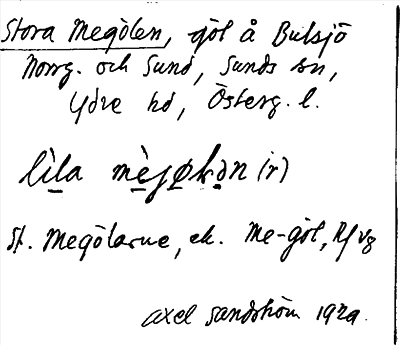 Stora Megölen, göl å Bulsjö
Norrg. och Sund, Sunds sn,
Ydre hd, Österg. l.
lìla mèjøkən (r)
St. Megölarne, ek. Me-göl, Rfvg
Axel Sandström 192a.